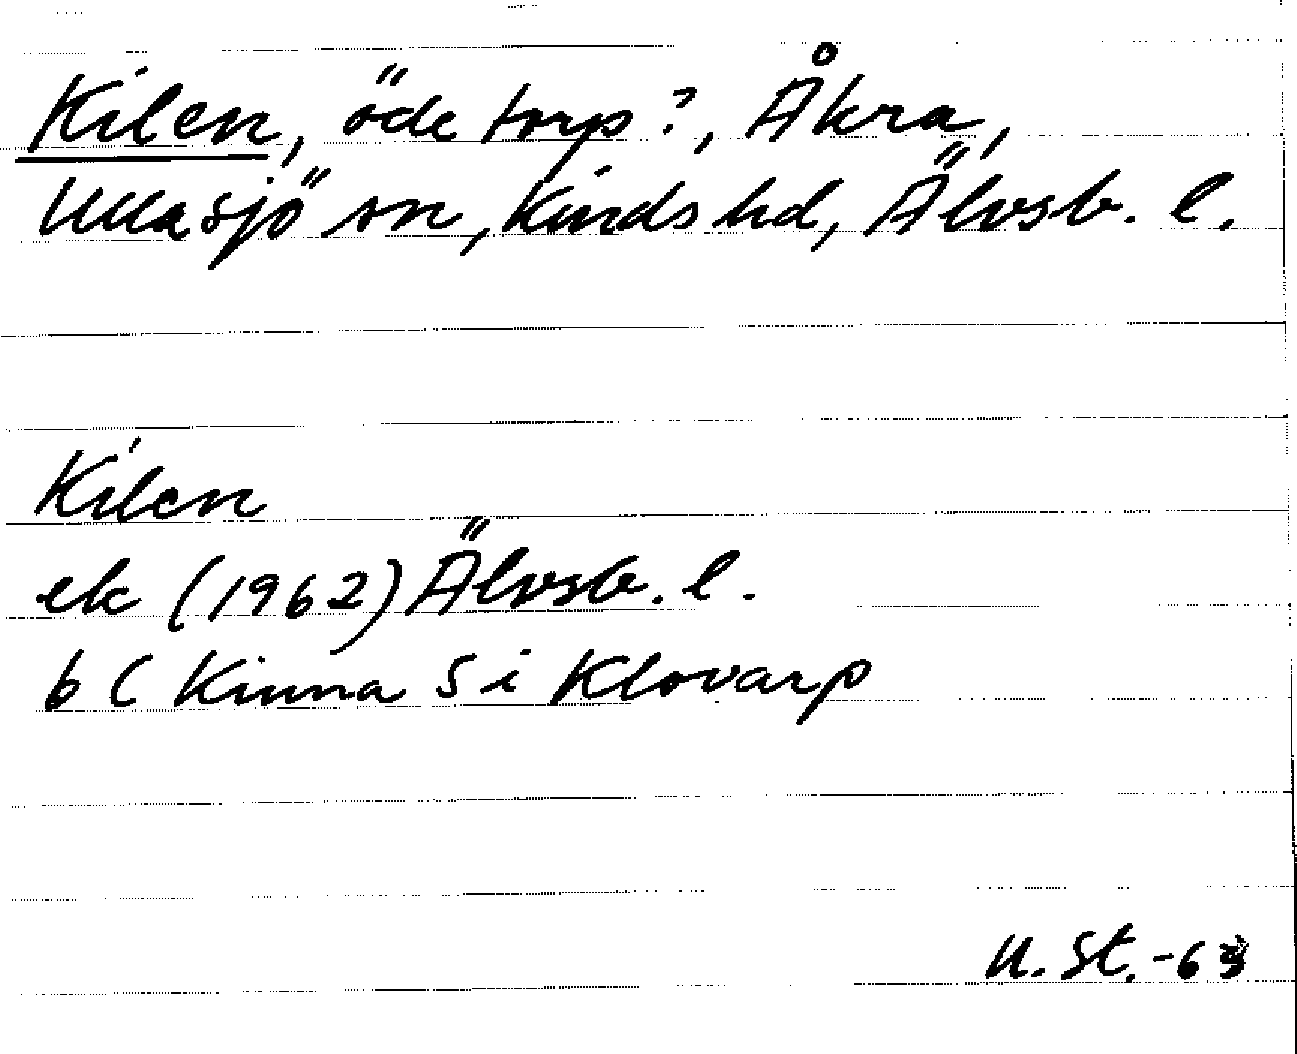 Kilen, öde torp?, Åkra,
Ullasjö sn, Kinds hd, Älvsb. l.
Kilen
ek (1962) Älvsb. l.
b ( Kinna S i Klovarp
U. St. -63